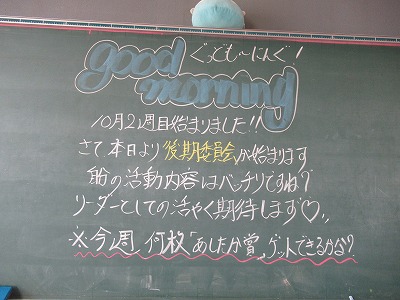 good ぐっどもーにんぐ!
morning
10月2週目始まりました!!
さて本日より後期委員会が始まります
前の活動内容はバッチリですね?
リーダーとしての活やく期待します♡。
※今週何枚「あしたか賞」ゲットできるかな?